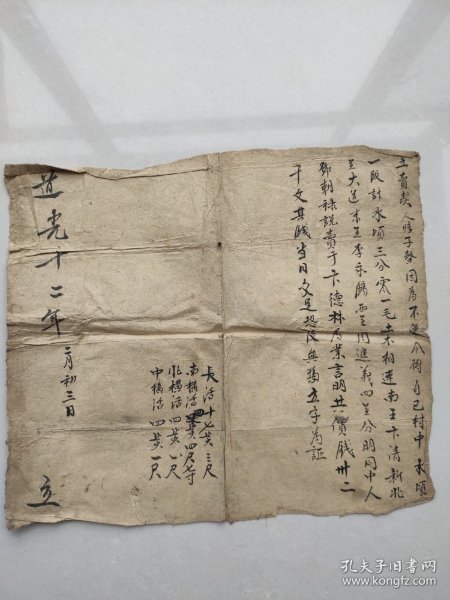 立賣契人 子 因為不便今將自己村中 頃
一段計 頃三分 一毛土木相連南至卞清新北
至大道東至李 西至周進義四至分明同中人
鄧朝祿說賣于卞德林為業言明共價錢卅二
千文其錢當日交足恐後無憑立字為証
長活十七 三尺
南橫活四 四尺七寸
北橫活四 八尺
中橫活四 一尺
道光十二年 二月初三日 立
孔夫子旧书网
www.kongfz.com